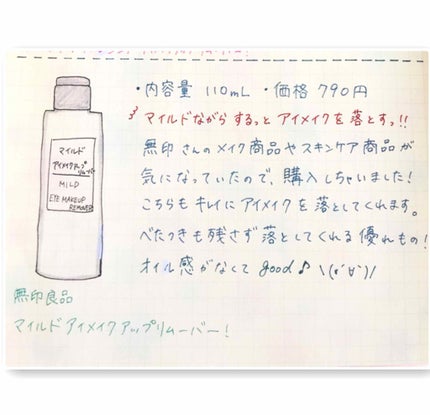 ・内容量 110mL ・価格 790円
マイルドながら するっと アイメイクを 落とすっ!!
無印さんのメイク商品やスキンケア商品が
気になっていたので、購入しちゃいました!
こちらも キレイに アイメイク を 落としてくれます。
べたつきも残さず 落としてくれる 優れもの!
オイル感がなくて good♪ \(°∀°)/
マイルド
アイメイクアップ
リムーバー
MILD
EYE MAKEUP
REMOVER
無印良品
マイルド アイメイク アップリムーバー!